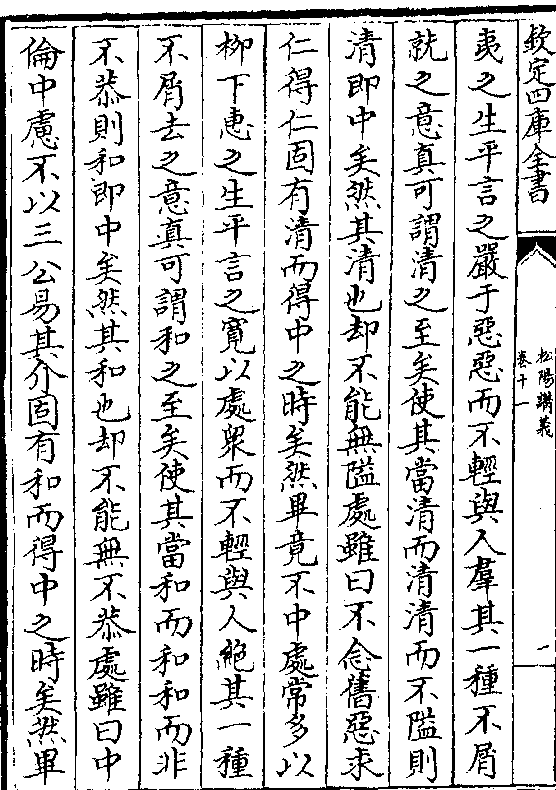 欽定四庫全書
松陽講義
卷十一
夷之生平言之嚴于惡惡而不輕與人羣其一種不屑
就之意真可謂清之至矣使其當清而清清而不隘則
清即中矣然其清也却不能無隘處雖曰不念舊惡求
仁得仁固有清而得中之時矣然畢竟不中處常多以
柳下惠之生平言之寛以處衆而不輕與人絶其一種
不屑去之意真可謂和之至矣使其當和而和和而非
不恭則和即中矣然其和也却不能無不恭處雖曰中
倫中慮不以三公易其介固有和而得中之時矣然畢